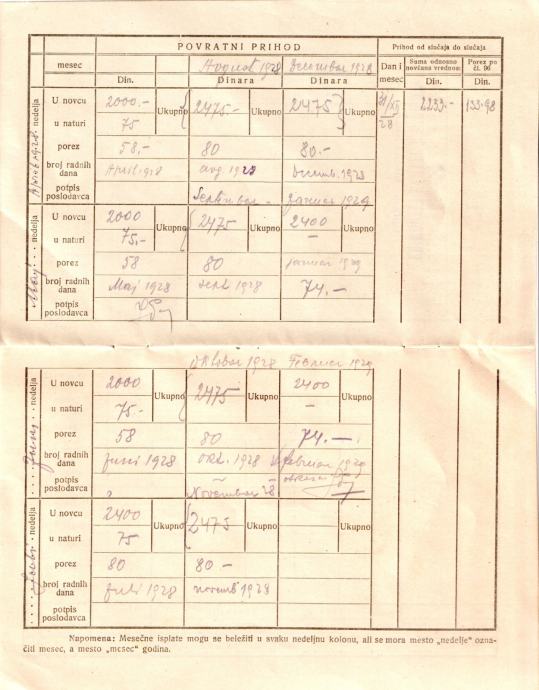 POVRATNI PRIHOD
Prihod od slučaja do slučaja
mesec
Avgust 1928
Decembar 1928
Dan i mesec
Suma odnosno novčana vrednost
Porez po čl. 96
Din.
Dinara
Dinara
Din.
Din.
April 1928. nedelja
U novcu 2000.- Ukupno 2475- Ukupno 2475 Ukupno 31/XII 28 2233.- 133.98
u naturi 75
porez 58.- 80 80.-
broj radnih dana April 1928 avg 1928 Decemb. 1928
potpis poslodavca Septembar - Januar 1929
Maj nedelja
U novcu 2000 Ukupno 2475 Ukupno 2400 Ukupno
u naturi 75.- —
porez 58 80 januar 1929
broj radnih dana Maj 1928 sept 1928 74.—
potpis poslodavca
Oktobar 1928 Februar 1929
Juni nedelja
U novcu 2000 Ukupno 2475 Ukupno 2400 Ukupno
u naturi 75- —
porez 58 80 74.—
broj radnih dana Juni 1928 okt. 1928 februar 1929
potpis poslodavca Novembar 28
nedelja
U novcu 2400 Ukupno 2475 Ukupno Ukupno
u naturi 75
porez 80 80 —
broj radnih dana Juli 1928 novemb 1928
potpis poslodavca
Napomena: Mesečne isplate mogu se beležiti u svaku nedeljnu kolonu, ali se mora mesto „nedelje" ozna-
čiti mesec, a mesto „mesec" godina.